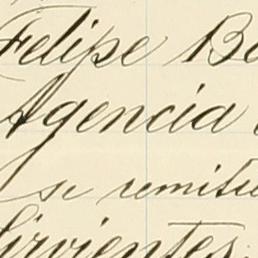 Felipe Ba
Agencia
se remitie
Sirvientes.